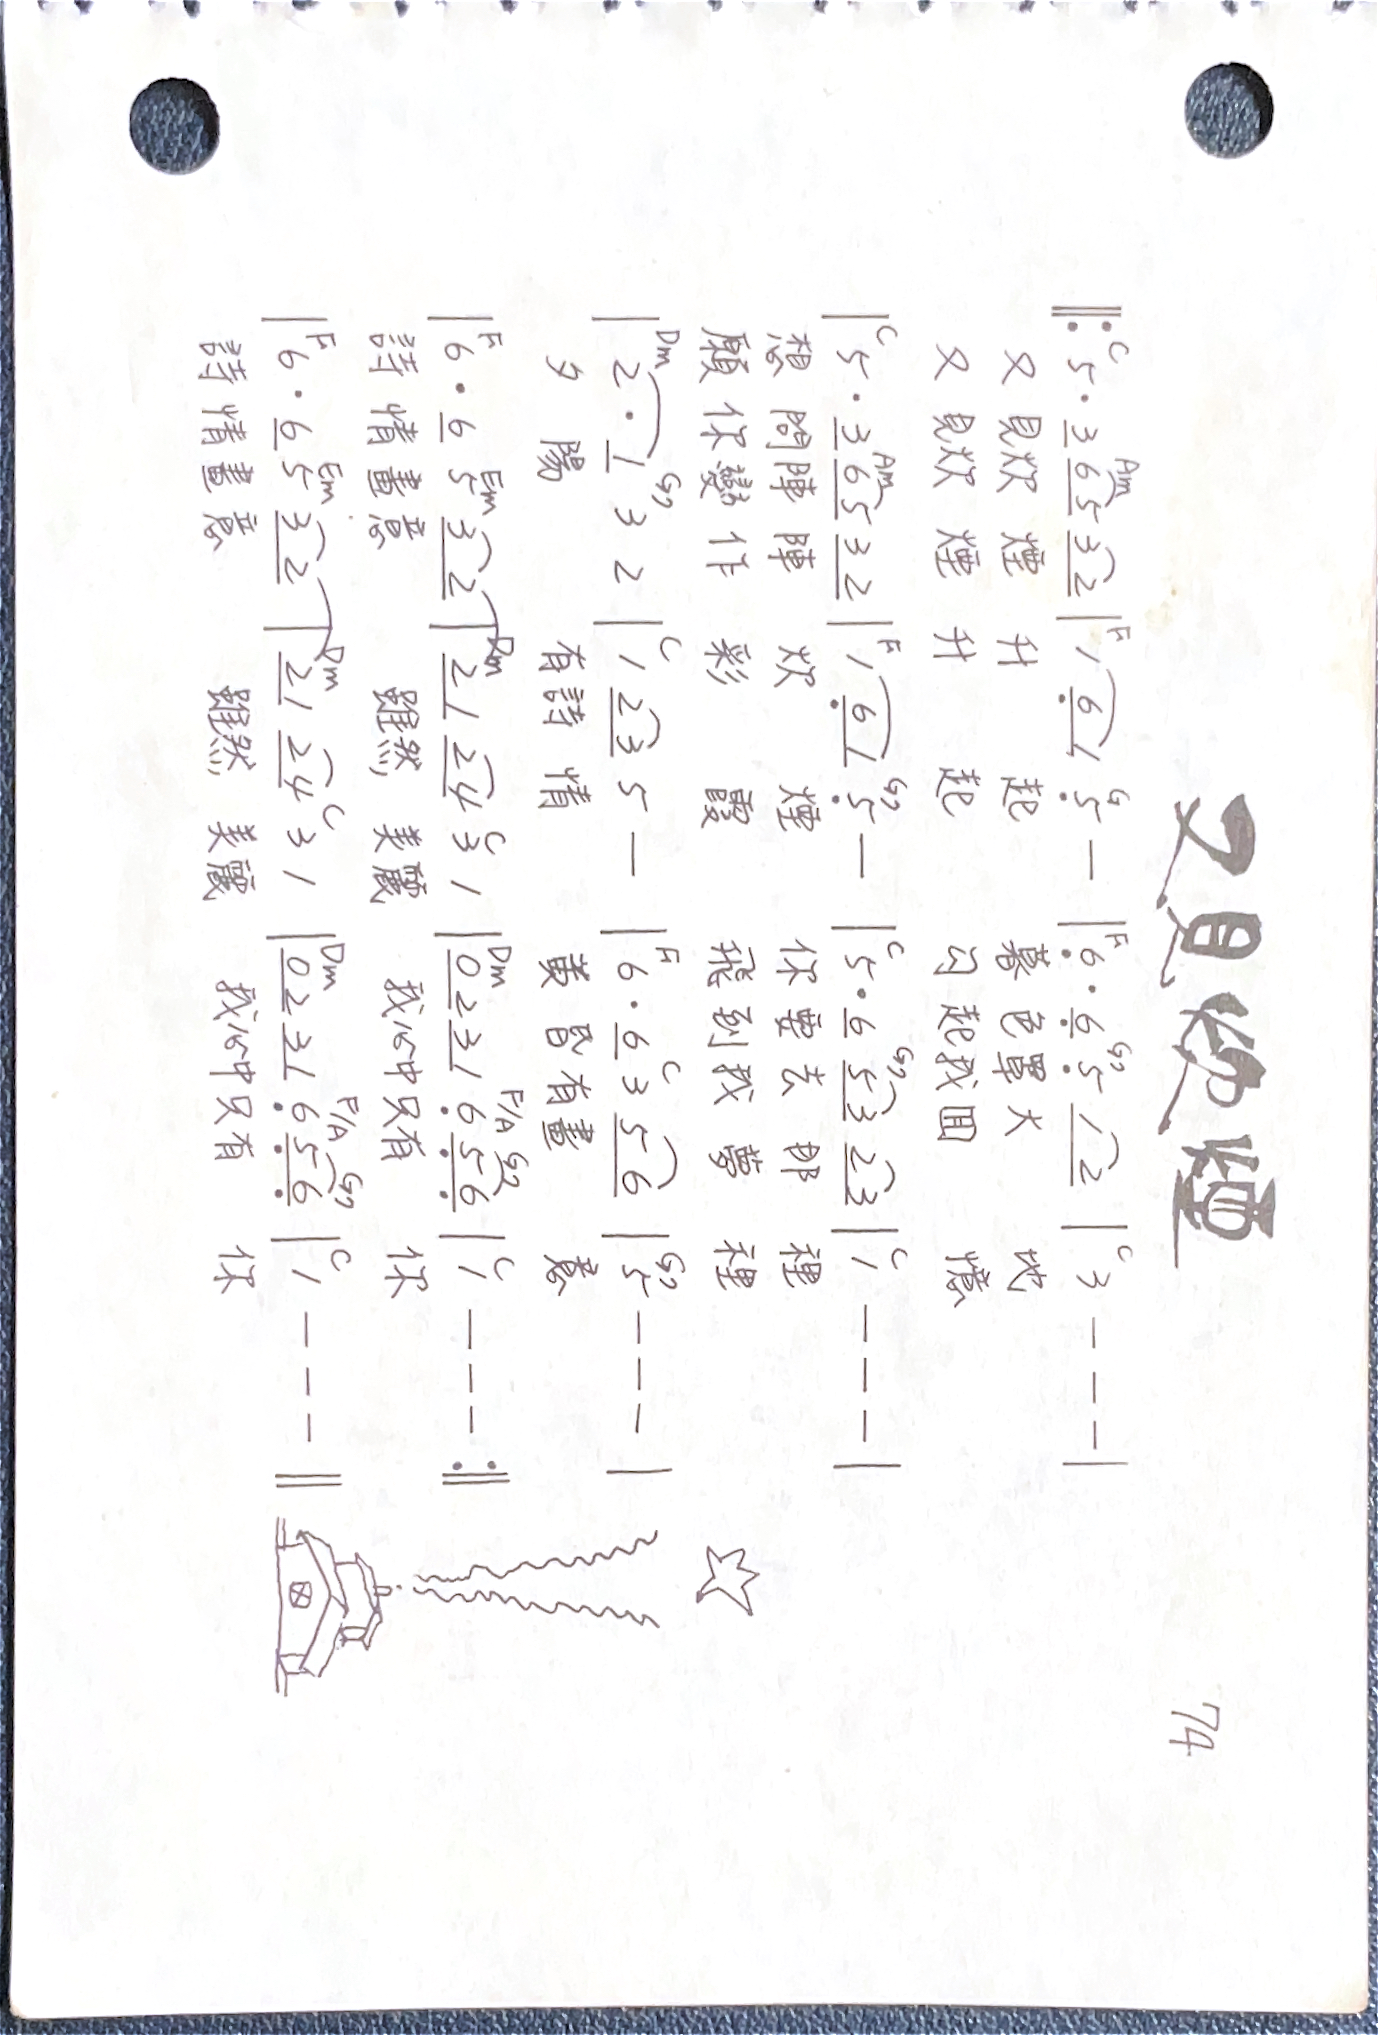 又見炊煙
74
C Am F G F G7 C
5 · 3 6 5 3 2 | 1 6 1 5 — | 6 · 6 5 1 2 | 3 — — — |
又見炊煙升起 暮色罩大地
又見炊煙升起 勾起我回憶
C Am F G7 C G7 C
| 5 · 3 6 5 3 2 | 1 6 1 5 — | 5 · 6 5 3 2 3 | 1 — — — |
想問陣陣炊煙 你要去那裡
願你變作彩霞 飛到我夢裡
Dm G7 C F C G7
| 2 · 1 3 2 | 1 2 3 5 — | 6 · 6 3 5 6 | 5 — — — |
夕陽有詩情 黃昏有畫意
F Em Dm C Dm F/A G7 C
| 6 · 6 5 3 2 | 2 1 2 4 3 1 | 0 2 3 1 6 5 6 | 1 — — — :||
詩情畫意 雖然美麗 我心中只有你
F Em Dm C Dm F/A G7 C
| 6 · 6 5 3 2 | 2 1 2 4 3 1 | 0 2 3 1 6 5 6 | 1 — — — ||
詩情畫意 雖然美麗 我心中只有你